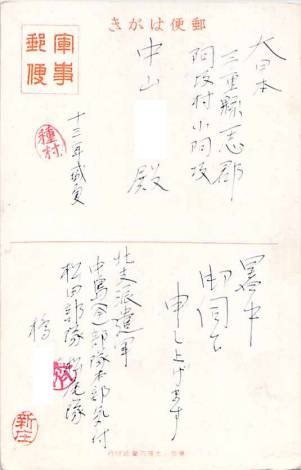 郵便はがき
軍事
郵便
大日本
三重縣一志郡
阿坂村小阿坂
中山
殿
十三年盛夏
種村
暑中
御伺ひ
申し上げます
北支派遣軍
中島(今)部隊本部気付
松田部隊
隊
橋
新庄